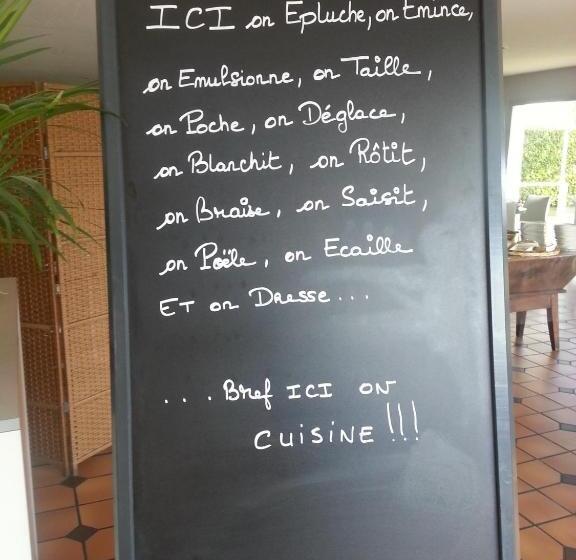 ICI on Epluche, on Emince,
on Emulsionne, on Taille,
on Poche, on Déglace,
on Blanchit, on Rôtit,
on Braise, on Saisit,
on Poële, on Ecaille
ET on Dresse...
...Bref ICI ON
CUISINE !!!